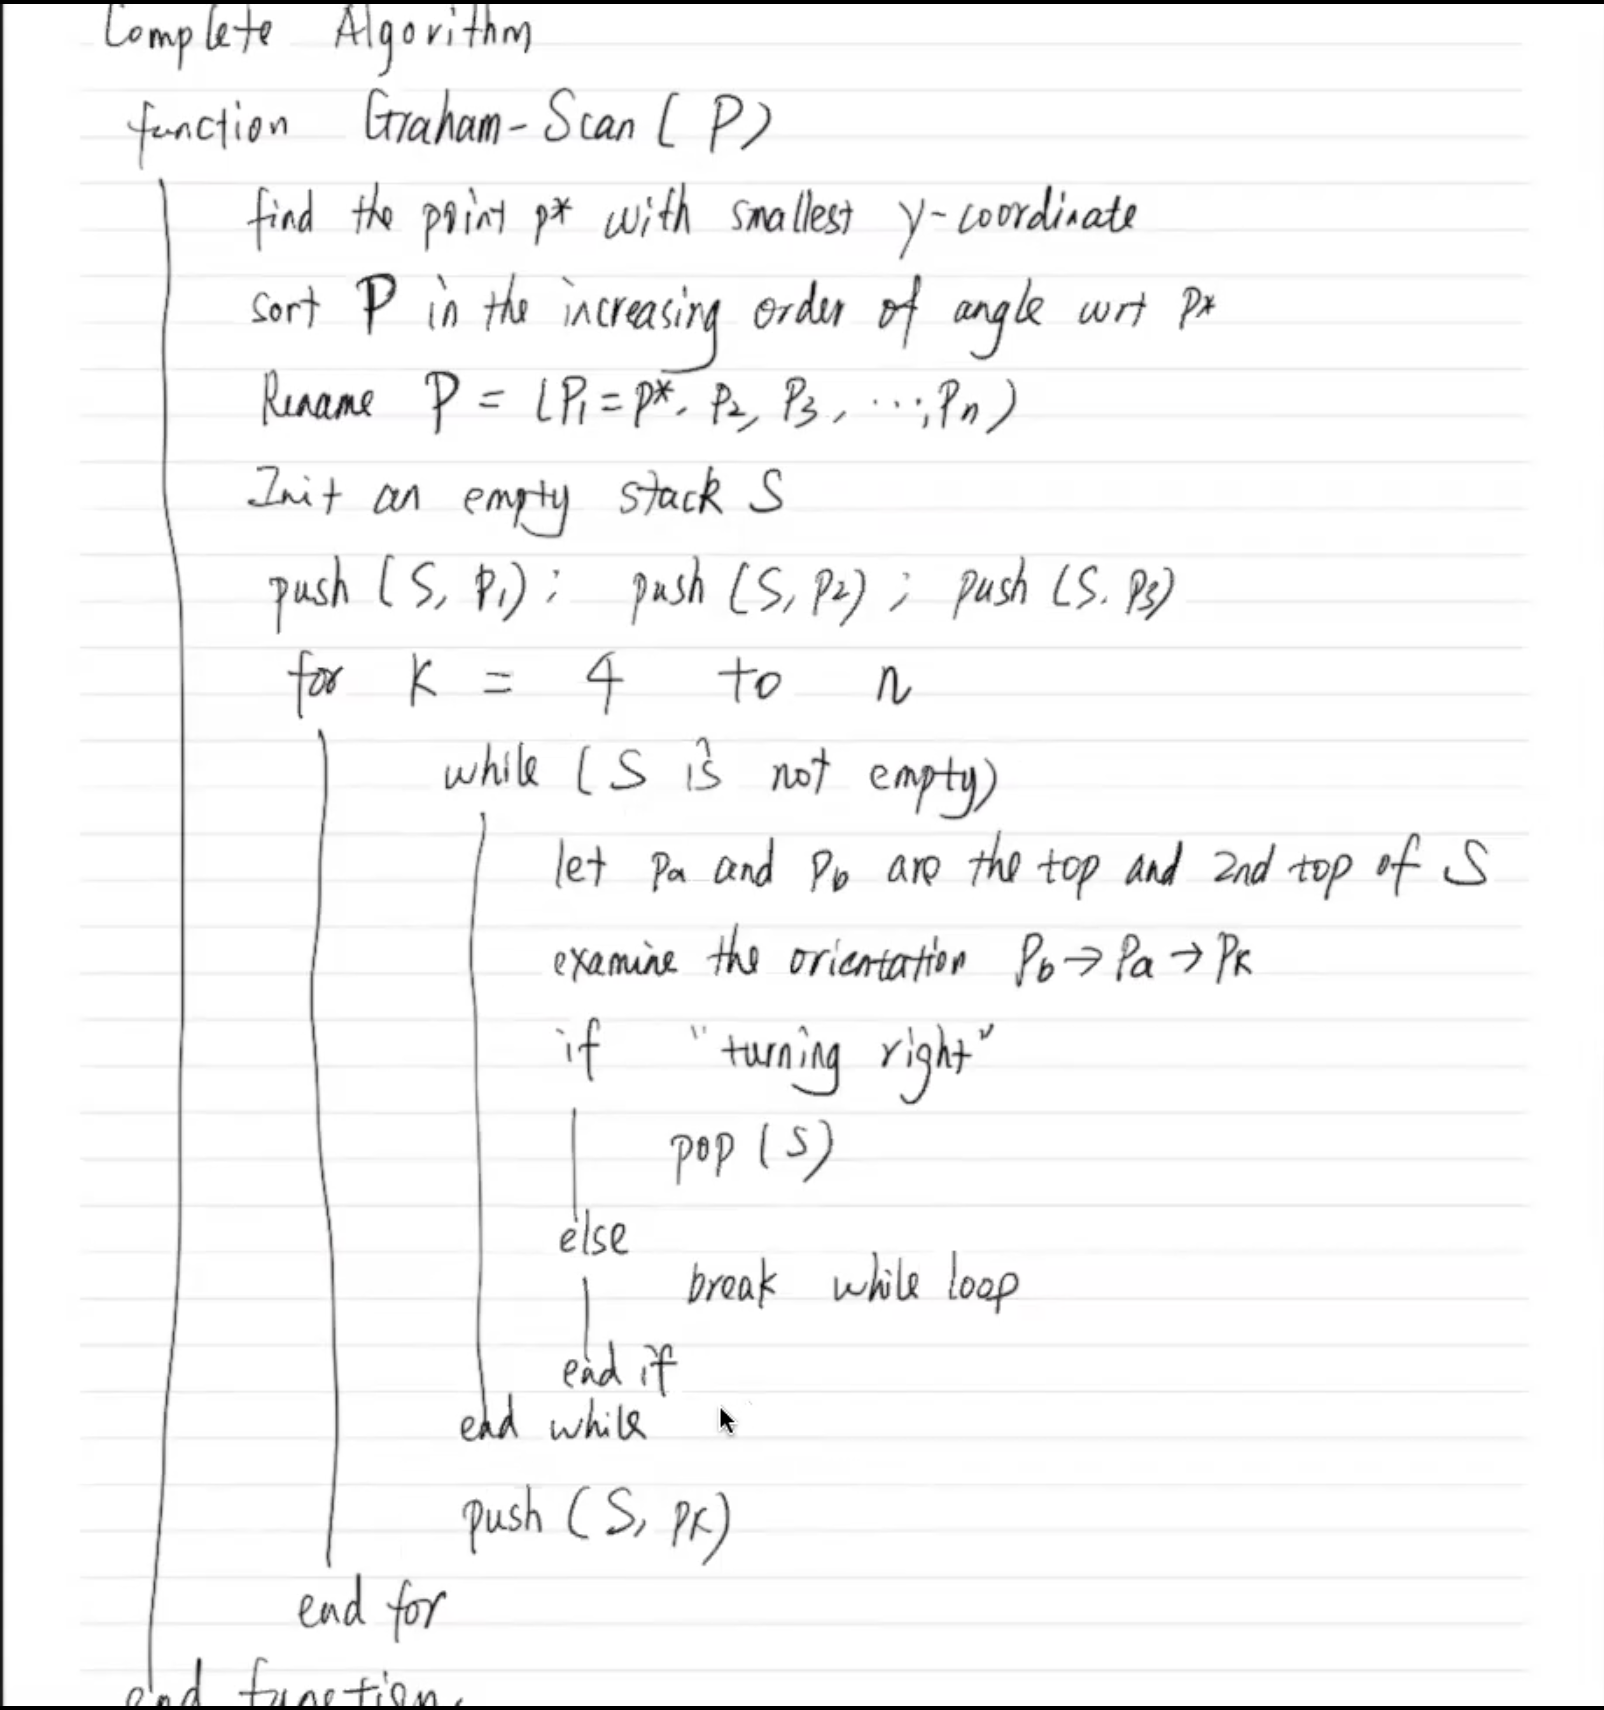 Complete Algorithm
function Graham-Scan (P)
find the point p* with smallest y-coordinate
sort P in the increasing order of angle wrt p*
Rename P = (P₁ = p*, P₂, P₃, ..., Pn)
Init an empty stack S
push (S, P₁); push (S, P₂); push (S. P₃)
for k = 4 to n
while (S is not empty)
let Pa and Pb are the top and 2nd top of S
examine the orientation Pb → Pa → Pk
if "turning right"
pop (S)
else
break while loop
end if
end while
push (S, Pk)
end for
end function.